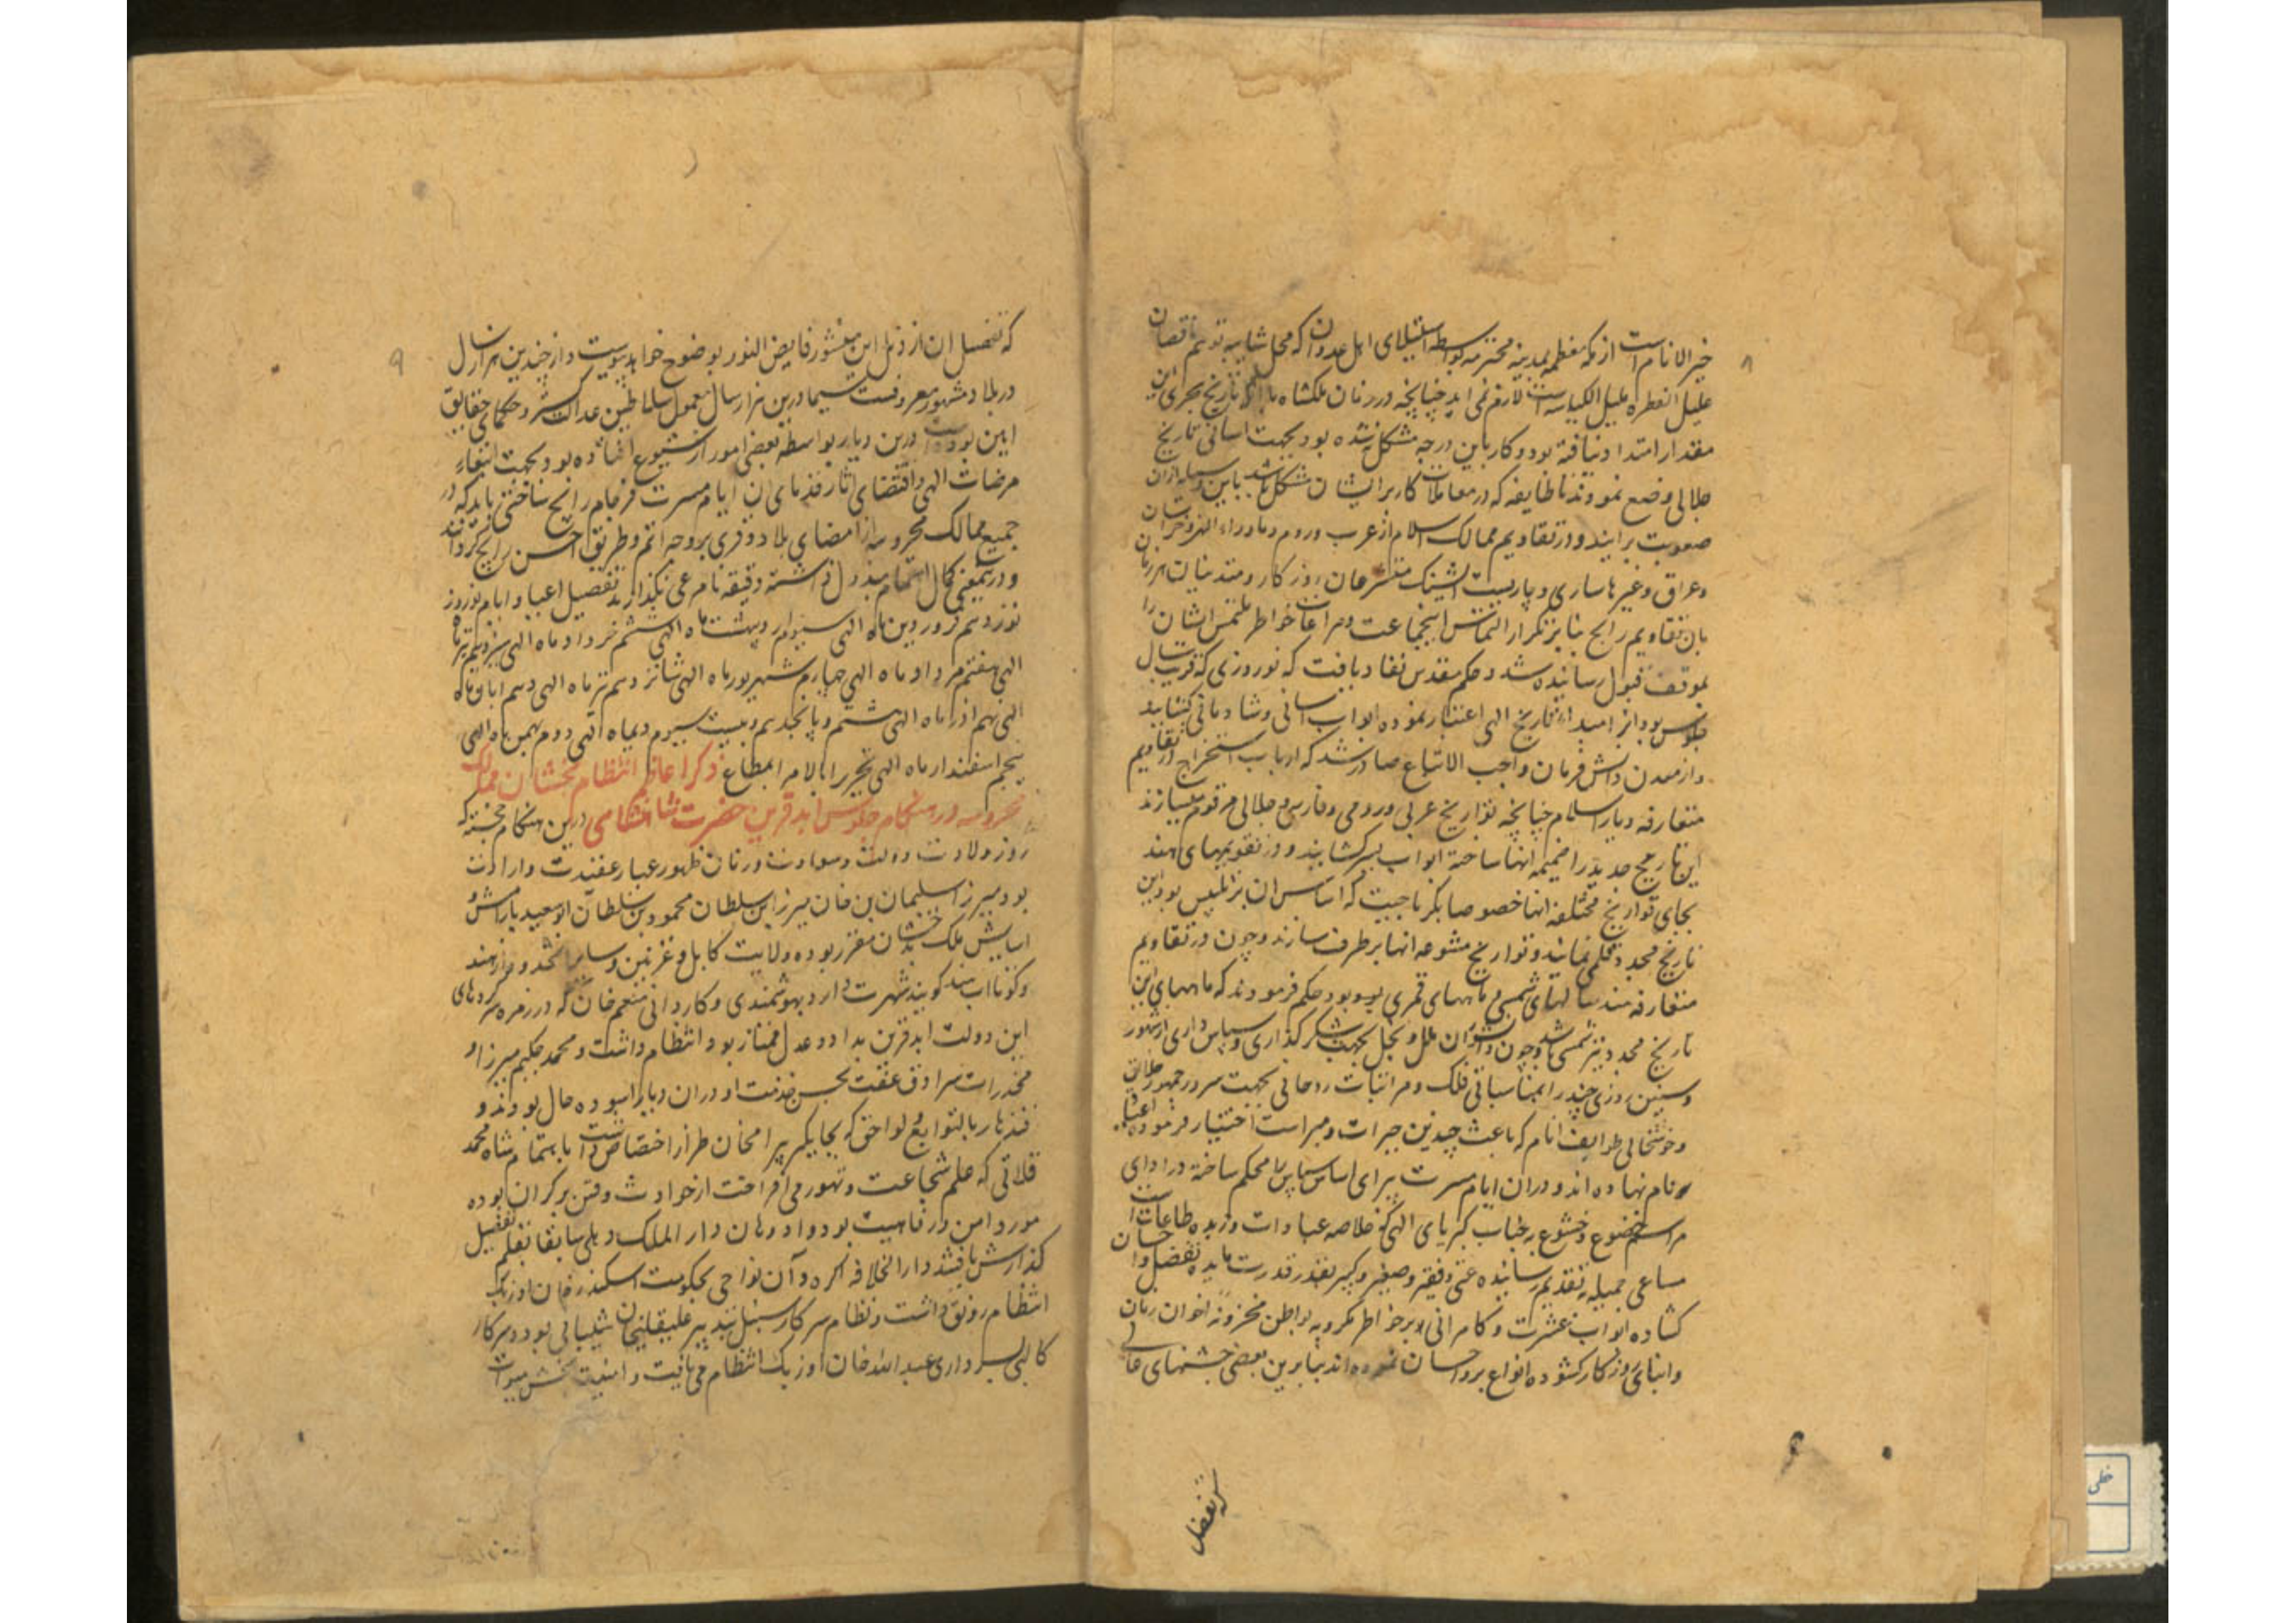 ۸
خیر الانام است از مکه معظمه بمدینه محترمه بواسطه استیلای اهل عدوان که محل شایبه توهم نقصان
علیل الفطره علیل الکیاسه است لازم نمی اید چنانچه در زمان ملکشاه با انکه تاریخ هجری این
مقدار امتداد نیافته بود و کار باین درجه مشکل نشده بود بجهت اسانی تاریخ
جلالی وضع نمودند تا طایفه که در معاملات کار بر ایشان مشکل باشد باین وسیله ازان
صعوبت برایند و در تقاویم ممالک اسلام از عرب و روم و ماوراء النهر و خراسان
و عراق و غیرها ساری و متشرعان روزکار و متدینان هر زمان
بان تقاویم رایج بنابر تکرار التماس اینجماعت و مراعات خواطر ملتمس ایشان را
بموقف قبول رسانیده شد و حکم مقدس نفاد یافت که نوروزی که قریب سال
جلوس بود از مبداء تاریخ الهی اعتبار نموده ابواب اسانی و شادمانی کشایند
و از معدن دانش فرمان واجب الاتباع صادر شد که ارباب استخراج از تقاویم
متعارفه دیار اسلام چنانچه تواریخ عربی و رومی و فارسی و جلالی مرقوم میسازند
این تاریخ جدید را ضمیمه انها ساخته ابواب یسر کشایند و در تقویمهای هند
بجای تواریخ مختلفه انها خصوصا بکرماجیت که اساس ان بر تلبیس بود این
تاریخ مجدد قلمی نمایند و تواریخ متنوعه انها بر طرف سازند و چون در تقاویم
متعارفه هند سالهای شمسی و ماههای قمری بود حکم فرمودند که ماههای این
تاریخ مجدد نیز شمسی باشد و چون دانشوران ملل و نحل بجهت شکر کذاری و سپاس داری از شهور
و سنین روزی چند را بمناسبات فلکی و مراتبات روحانی بجهت سرور جمهور خلایق
و خوشحالی طوایف انام که باعث چندین خیرات و مبرات است اختیار فرموده اعیاد
نام نهاده اند و دران ایام مسرت پیرای اساس سپاس را محکم ساخته در ادای
مراسم خضوع و خشوع بجناب کبریای الهی که خلاصه عبادات و زبده طاعات است
مساعی جمیله بتقدیم رسانیده غنی و فقیر و صغیر و کبیر بقدر قدرت مایده تفضل و احسان
کشاده ابواب عشرت و کامرانی بر خواطر مکروبه و بواطن محزونه اخوان زمان
و ابنای روزکار کشوده انواع بر و احسان نموده اند بنابرین بعضی جشنهای عالی
که تفصیل
۹
که تفصیل ان از ذیل این منشور فایض النور بوضوح خواهد پیوست و از چندین هزار سال
در بلاد مشهور و معروفست سیما درین هزار سال معمول سلاطین عدالت کستر و حکمای حقایق
ایین بوده است درین دیار بواسطه بعضی امور از شیوع افتاده بود بجهت ابتغاء
مرضات الهی و اقتضای اثار قدمای ان ایام مسرت فرجام رایج ساختن باید که در
جمیع ممالک محروسه از امصار و بلاد و قری بر وجه اتم و طریق احسن رایج کردانند
و درینمعنی کمال اهتمام مبذول داشته دقیقه نامرعی نکذارند تفصیل اعیاد ایام نوروز
نوزدهم فروردین ماه الهی سیوم اردیبهشت ماه الهی ششم خرداد ماه الهی سیزدهم تیرماه
الهی هفتم مرداد ماه الهی چهارم شهریور ماه الهی شانزدهم مهر ماه الهی دهم ابان ماه
الهی نهم اذر ماه الهی هشتم و پانجدهم و بیست سیوم دیماه الهی دوم بهمن ماه الهی
پنجم اسفندار ماه الهی تحریرا بالامر المطاع ذکر اعاظم انتظام بخشان ممالک
محروسه در هنکام جلوس ابد قرین حضرت شاهنشاهی درین هنکام خجسته که
روز ولادت دولت و سعادت و زمان ظهور عیار عقیدت و ارادت
بود میرزا سلیمان بن خان میرزا بن سلطان محمود بن سلطان ابوسعید بارامش و
اسایش ملک بدخشان مقرر بود و ولایت کابل و غزنین و سایر انحدود از هند
و کوتا اب سند کویند شهرت دارد بهوشمندی و کاردانی منعم خان که در زمره سرکردهای
این دولت ابد قرین بداد و عدل ممتاز بود انتظام داشت و محمد حکیم میرزا و
مخدرات سرادق عفت بحسن خدمت او دران دیار اسوده حال بودند و
قندهار با توابع و لواحق که بجایکیر بیرامخان طراز اختصاص داشت باهتمام شاه محمد
قلاتی که علم شجاعت و تهور می افراخت از حوادث و فتن بر کران بوده
مورد امن و رفاهیت بود و اوضاع دار الملک دهلی سابقا بقلم تفصیل
کذارش یافته شد دار الخلافه اکره و آن نواحی بحکومت اسکندر خان اوزبک
انتظام و رونق داشت و نظام سرکار سنبل بتدبیر علیقلیخان شیبانی بود و سرکار
کالپی بسرداری عبد الله خان اوزبک انتظام می یافت و امنیت بخش